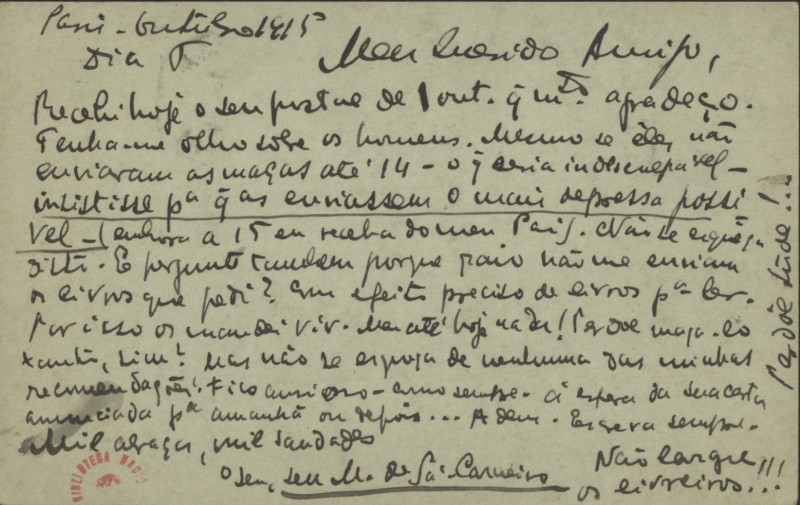 Paris - Outubro 1915
Dia 5
Meu Querido Amigo,
Recebi hoje o seu postal de 1 out. q mto agradeço.
Tenha-me olho sobre os homens. Mesmo se êles não
enviaram as maças até 14 - o q seria indesculpavel -
insistisse pa q as enviassem o mais depressa possi
vel - (embora a 15 eu receba do meu Pai). Não se esqueça
disto. E pergunte tambem porque raio não me enviam
os livros que pedi? Com efeito preciso de livros pa ler.
Por isso os mandei vir. Mas até hoje nada! Perdoe maça-lo
tanto, sim? Mas não se esqueça de nenhuma das minhas
recomendações. Fico ansioso - como sempre - á espera da sua carta
anunciada pa amanhã ou depois... Adeus. Escreva sempre.
Mil abraços, mil saudades
o seu, seu M. de Sá-Carneiro
Não largue
os livreiros...!!!
Perdôe tude!...
BIBLIOTECA NACI